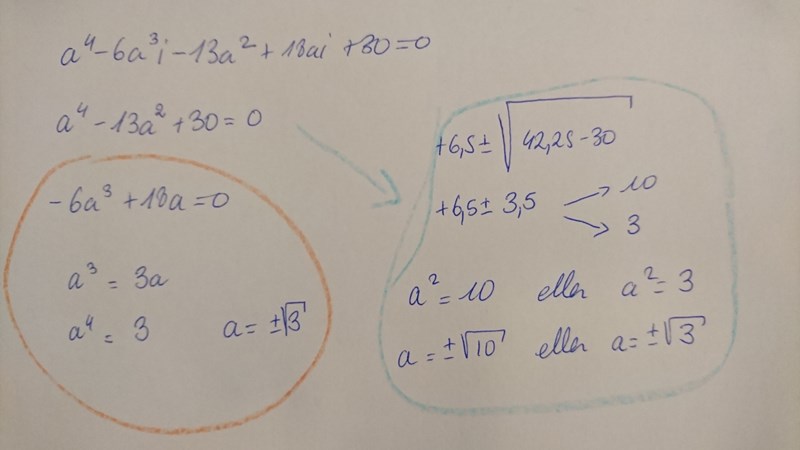 a⁴-6a³i-13a²+18ai+30=0
a⁴-13a²+30=0
-6a³+18a=0
a³=3a
a⁴=3 a=±√3
+6,5±√42,25-30
+6,5±3,5 → 10
→ 3
a²=10 eller a²=3
a=±√10 eller a=±√3